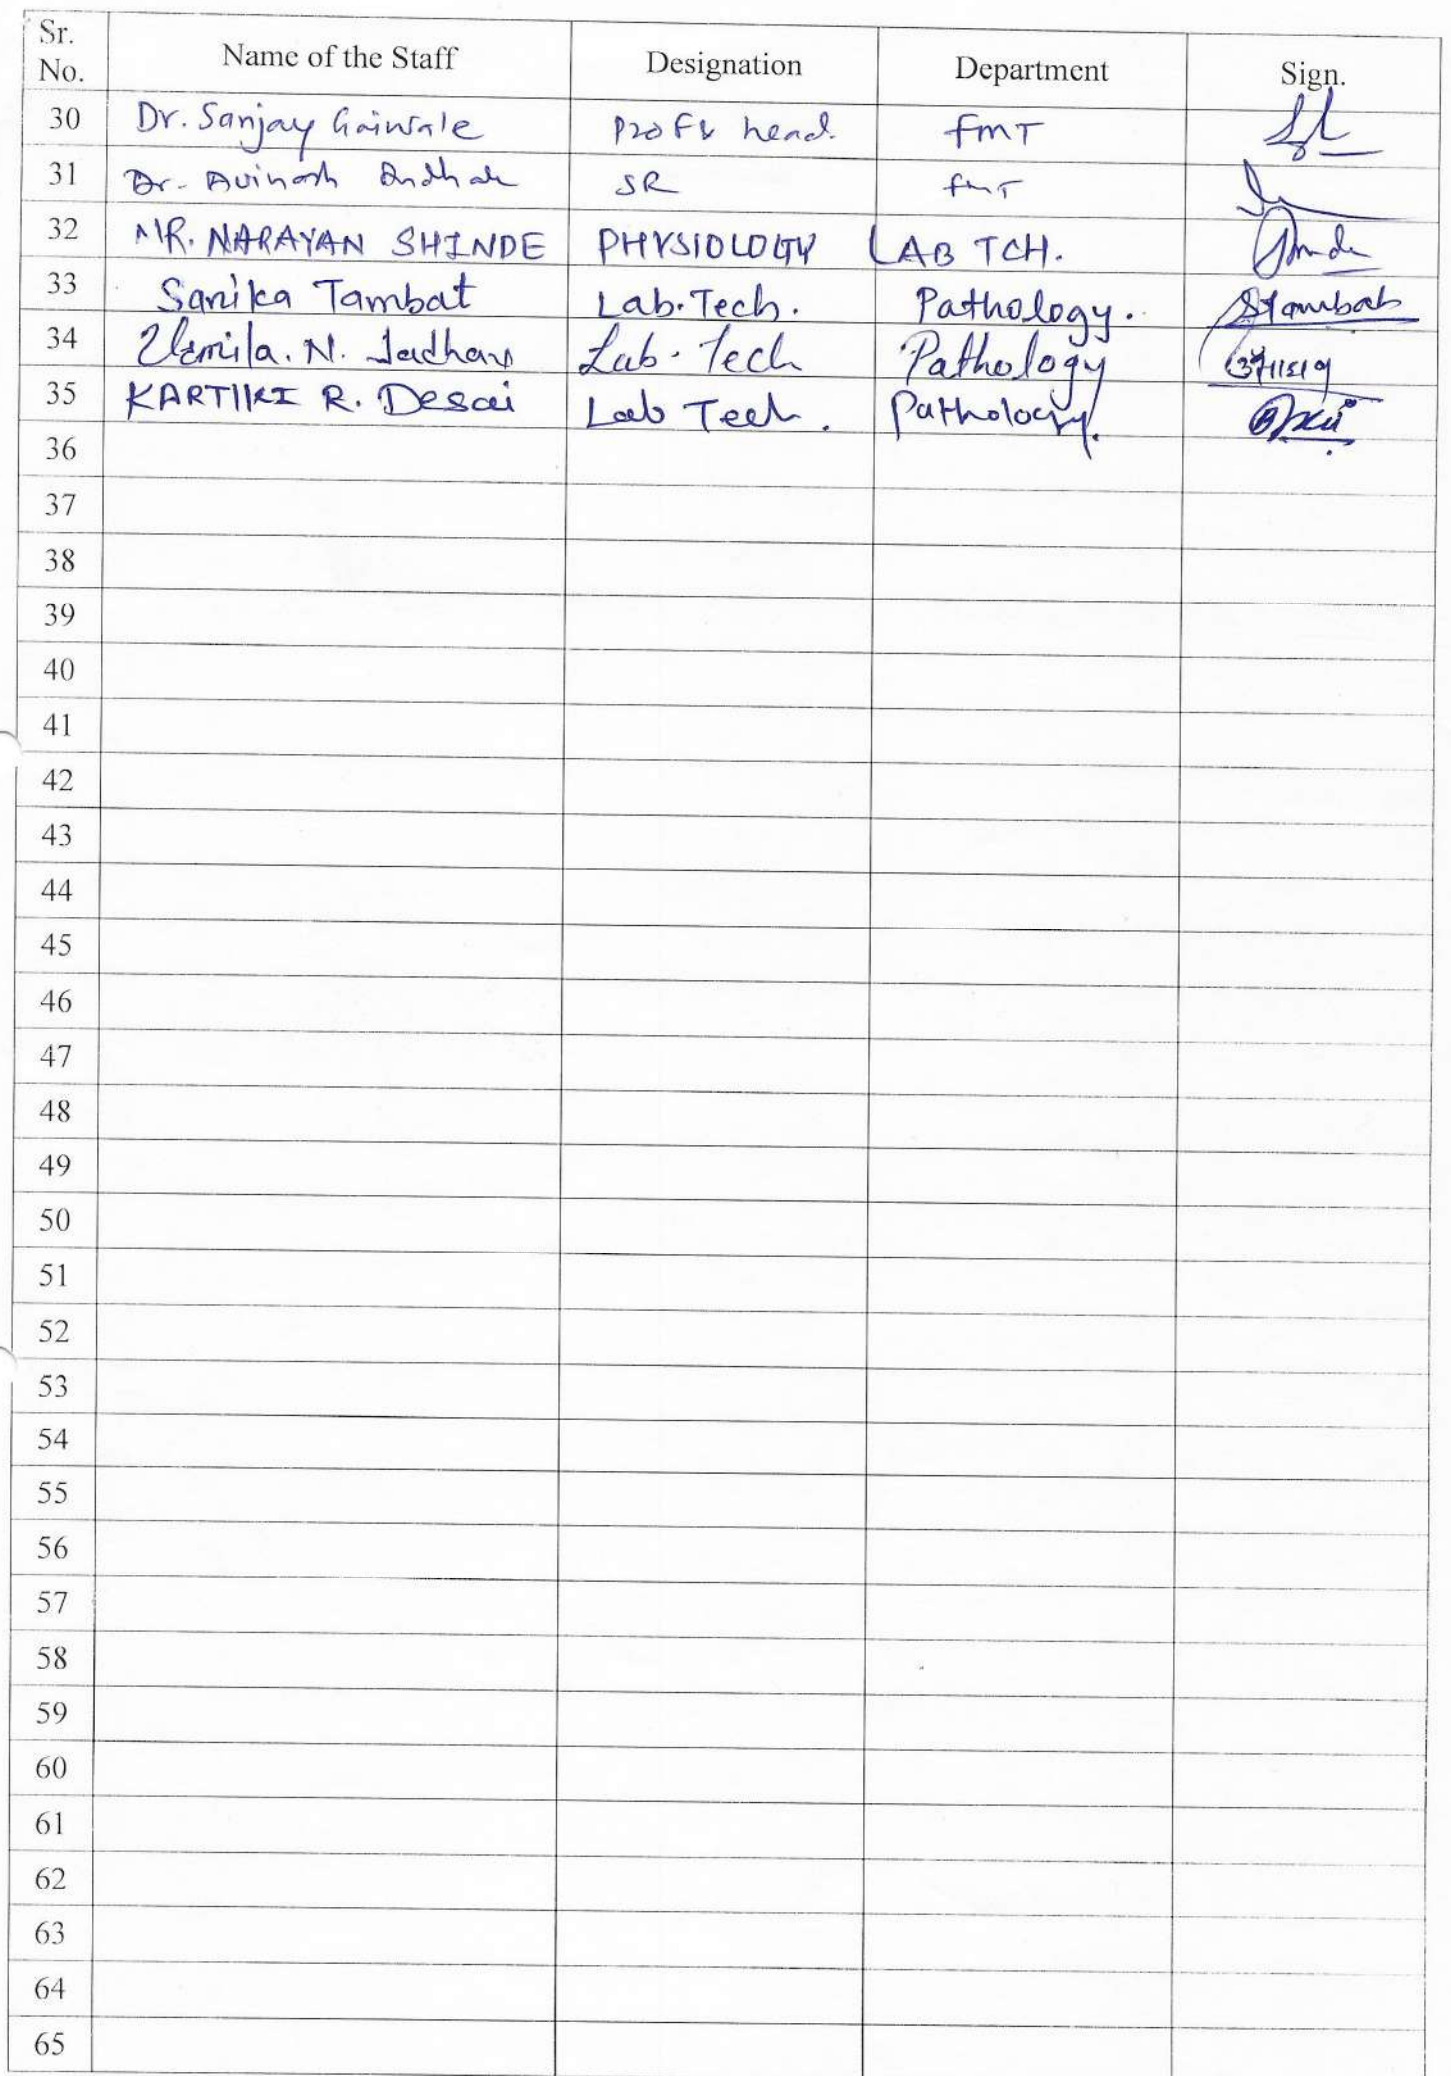 Sr. No. Name of the Staff Designation Department Sign.
30 Dr. Sanjay Gaiwale Prof & head. FMT
31 Dr. Avinash FMT SR
32 MR. NARAYAN SHINDE PHYSIOLOGY LAB TCH.
33 Sanika Tambat Lab.Tech. Pathology. STambat
34 Urmila. N. Jadhav Lab. Tech Pathology
35 KARTIKI R. Desai Lab Tech. Pathology.
36
37
38
39
40
41
42
43
44
45
46
47
48
49
50
51
52
53
54
55
56
57
58
59
60
61
62
63
64
65